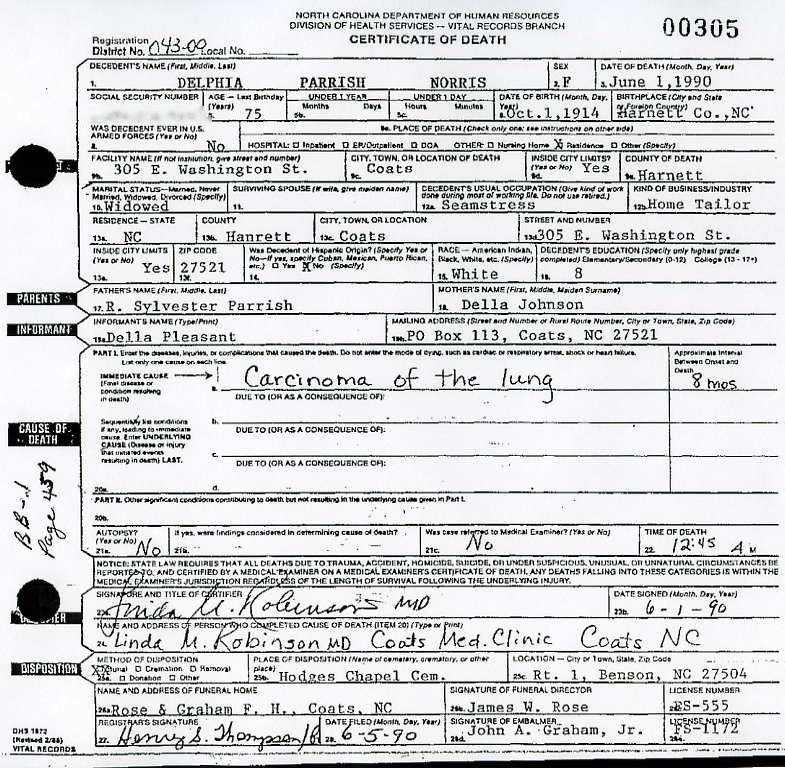 NORTH CAROLINA DEPARTMENT OF HUMAN RESOURCES
DIVISION OF HEALTH SERVICES — VITAL RECORDS BRANCH
CERTIFICATE OF DEATH
00305
Registration District No. 043-00 Local No.
DECEDENT'S NAME (First, Middle, Last) SEX DATE OF DEATH (Month, Day, Year)
1. DELPHIA PARRISH NORRIS 2. F 3. June 1,1990
SOCIAL SECURITY NUMBER AGE — Last Birthday (Years) UNDER 1 YEAR UNDER 1 DAY DATE OF BIRTH (Month, Day, Year) BIRTHPLACE (City and State or Foreign Country)
Months Days Hours Minutes
75 5b. 5c. Oct.1,1914 Harnett Co.,NC
WAS DECEDENT EVER IN U.S. ARMED FORCES? (Yes or No) 9a. PLACE OF DEATH (Check only one; see instructions on other side)
8. No HOSPITAL: ☐ Inpatient ☐ ER/Outpatient ☐ DOA OTHER: ☐ Nursing Home X Residence ☐ Other (Specify)
FACILITY NAME (If not institution, give street and number) CITY, TOWN, OR LOCATION OF DEATH INSIDE CITY LIMITS? (Yes or No) COUNTY OF DEATH
9b. 305 E. Washington St. 9c. Coats 9d. Yes 9e. Harnett
MARITAL STATUS—Married, Never Married, Widowed, Divorced (Specify) SURVIVING SPOUSE (If wife, give maiden name) DECEDENT'S USUAL OCCUPATION (Give kind of work done during most of working life. Do not use retired.) KIND OF BUSINESS/INDUSTRY
10. Widowed 11. 12a. Seamstress 12b. Home Tailor
RESIDENCE — STATE COUNTY CITY, TOWN, OR LOCATION STREET AND NUMBER
13a. NC 13b. Hanrett 13c. Coats 13d. 305 E. Washington St.
INSIDE CITY LIMITS (Yes or No) ZIP CODE Was Decedent of Hispanic Origin? (Specify Yes or No—If yes, specify Cuban, Mexican, Puerto Rican, etc.) ☐ Yes X No (Specify) RACE — American Indian, Black, White, etc. (Specify) DECEDENT'S EDUCATION (Specify only highest grade completed) Elementary/Secondary (0-12) College (13 - 17+)
13e. Yes 13f. 27521 14. 15. White 16. 8
PARENTS
FATHER'S NAME (First, Middle, Last) MOTHER'S NAME (First, Middle, Maiden Surname)
17. R. Sylvester Parrish 18. Della Johnson
INFORMANT
INFORMANT'S NAME (Type/Print) MAILING ADDRESS (Street and Number or Rural Route Number, City or Town, State, Zip Code)
19a. Della Pleasant 19b. PO Box 113, Coats, NC 27521
PART I. Enter the diseases, injuries, or complications that caused the death. Do not enter the mode of dying, such as cardiac or respiratory arrest, shock or heart failure.
List only one cause on each line.
Approximate Interval Between Onset and Death
IMMEDIATE CAUSE (Final disease or condition resulting in death)
a. Carcinoma of the lung 8 mos
DUE TO (OR AS A CONSEQUENCE OF):
CAUSE OF DEATH
Sequentially list conditions if any, leading to immediate cause. Enter UNDERLYING CAUSE (Disease or injury that initiated events resulting in death) LAST.
b.
DUE TO (OR AS A CONSEQUENCE OF):
c.
DUE TO (OR AS A CONSEQUENCE OF):
20a. d.
BB-1
Page 459
PART II. Other significant conditions contributing to death but not resulting in the underlying cause given in Part I.
20b.
AUTOPSY? (Yes or No) If yes, were findings considered in determining cause of death? Was case referred to Medical Examiner? (Yes or No) TIME OF DEATH
21a. No 21b. 21c. No 22. 12:45 A M
NOTICE: STATE LAW REQUIRES THAT ALL DEATHS DUE TO TRAUMA, ACCIDENT, HOMICIDE, SUICIDE, OR UNDER SUSPICIOUS, UNUSUAL, OR UNNATURAL CIRCUMSTANCES BE
REPORTED TO, AND CERTIFIED BY A MEDICAL EXAMINER ON A MEDICAL EXAMINER'S CERTIFICATE OF DEATH. ANY DEATHS FALLING INTO THESE CATEGORIES IS WITHIN THE
MEDICAL EXAMINER'S JURISDICTION REGARDLESS OF THE LENGTH OF SURVIVAL FOLLOWING THE UNDERLYING INJURY.
SIGNATURE AND TITLE OF CERTIFIER DATE SIGNED (Month, Day, Year)
23a. Linda M. Robinson MD 23b. 6-1-90
NAME AND ADDRESS OF PERSON WHO COMPLETED CAUSE OF DEATH (ITEM 20) (Type or Print)
24. Linda M. Robinson MD Coats Med. Clinic Coats NC
DISPOSITION
METHOD OF DISPOSITION PLACE OF DISPOSITION (Name of cemetery, crematory, or other place) LOCATION — City or Town, State, Zip Code
Burial ☐ Cremation ☐ Removal
25a. ☐ Donation ☐ Other 25b. Hodges Chapel Cem. 25c. Rt. 1, Benson, NC 27504
NAME AND ADDRESS OF FUNERAL HOME SIGNATURE OF FUNERAL DIRECTOR LICENSE NUMBER
26a. Rose & Graham F. H., Coats, NC 26b. James W. Rose FS-555
REGISTRAR'S SIGNATURE DATE FILED (Month, Day, Year) SIGNATURE OF EMBALMER LICENSE NUMBER
27. Henry S. Thompson 28. 6-5-90 26d. John A. Graham, Jr. FS-1172
DHS 1872
(Revised 2/88)
VITAL RECORDS